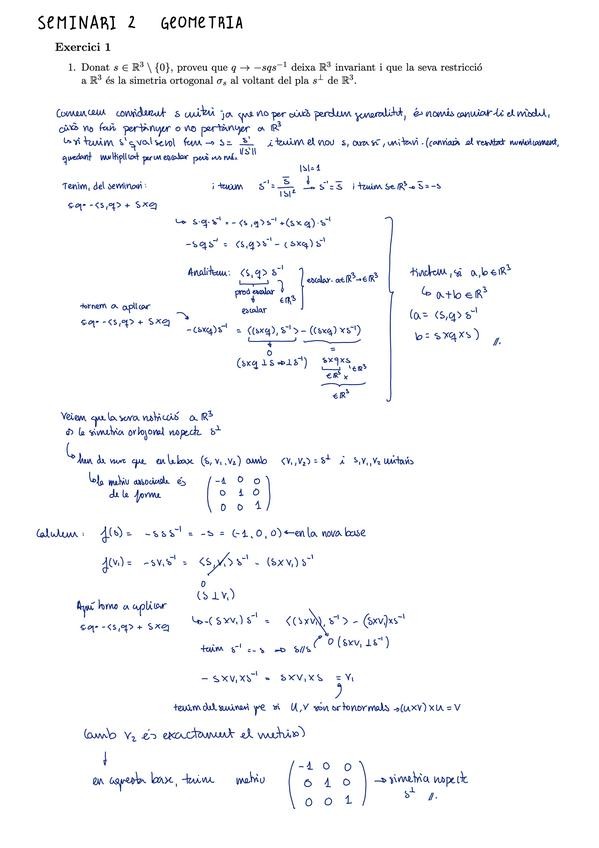 SEMINARI 2 GEOMETRIA
Exercici 1
1. Donat s ∈ ℝ³ \ {0}, proveu que q → −sqs⁻¹ deixa ℝ³ invariant i que la seva restricció
a ℝ³ és la simetria ortogonal σₛ al voltant del pla s⊥ de ℝ³.
Comencem considerant s unitari ja que no per això perdem generalitat, és només canviar-li el mòdul,
això no farà pertànyer o no pertànyer a ℝ³
↳ si tenim s' qualsevol fem → s = s'/||s'|| i tenim el nou s, ara sí, unitari. (canviarà el resultat numèricament,
quedant multiplicat per un escalar però
|s|=1
Tenim, del seminari: i tenim s⁻¹ = s̄/|s|² → s⁻¹ = s̄ i tenim s∈ℝ³ → s̄ = -s
sq = -<s,q> + s×q
↳ s·q·s⁻¹ = -<s,q>s⁻¹ + (s×q)·s⁻¹
-sqs⁻¹ = <s,q>s⁻¹ - (s×q)s⁻¹
Analitzem: <s,q> s⁻¹
prod escalar ∈ℝ³ escalar · a∈ℝ³ → ∈ℝ³
escalar
tindrem, si a,b ∈ ℝ³
↳ a+b ∈ ℝ³
(a = <s,q> s⁻¹
b = s×q×s) //.
tornem a aplicar
sq = -<s,q> + s×q
-(s×q)s⁻¹ = <(s×q), s⁻¹> - ((s×q)×s⁻¹)
0 =
(s×q ⊥ s ⇒ ⊥ s⁻¹) s×q×s
∈ℝ³ × ∈ℝ³
∈ℝ³
Veiem que la seva restricció a ℝ³
és la simetria ortogonal respecte s⊥
↳ hem de veure que en la base (s, v₁, v₂) amb <v₁,v₂> = s⊥ i s, v₁, v₂ unitaris
↳ la matriu associada és
de la forme
(-1 0 0
0 1 0
0 0 1)
Calculem: f(s) = -sss⁻¹ = -s = (-1,0,0) ← en la nova base
f(v₁) = -sv₁s⁻¹ = <s,v₁>s⁻¹ - (s×v₁)s⁻¹
0
(s ⊥ v₁)
Aquí torno a aplicar
sq = -<s,q> + s×q
↳ -(s×v₁)s⁻¹ = <(s×v₁), s⁻¹> - (s×v₁)×s⁻¹
0 (s×v₁ ⊥ s⁻¹)
tenim s⁻¹ = -s ⇒ s//s⁻¹
- s×v₁×s⁻¹ = s×v₁×s = v₁
tenim del seminari que si u,v són ortonormals → (u×v)×u = v
(amb v₂ és exactament el mateix)
↓
en aquesta base, tenim matriu
(-1 0 0
0 1 0
0 0 1)
→ simetria respecte
s⊥ //.